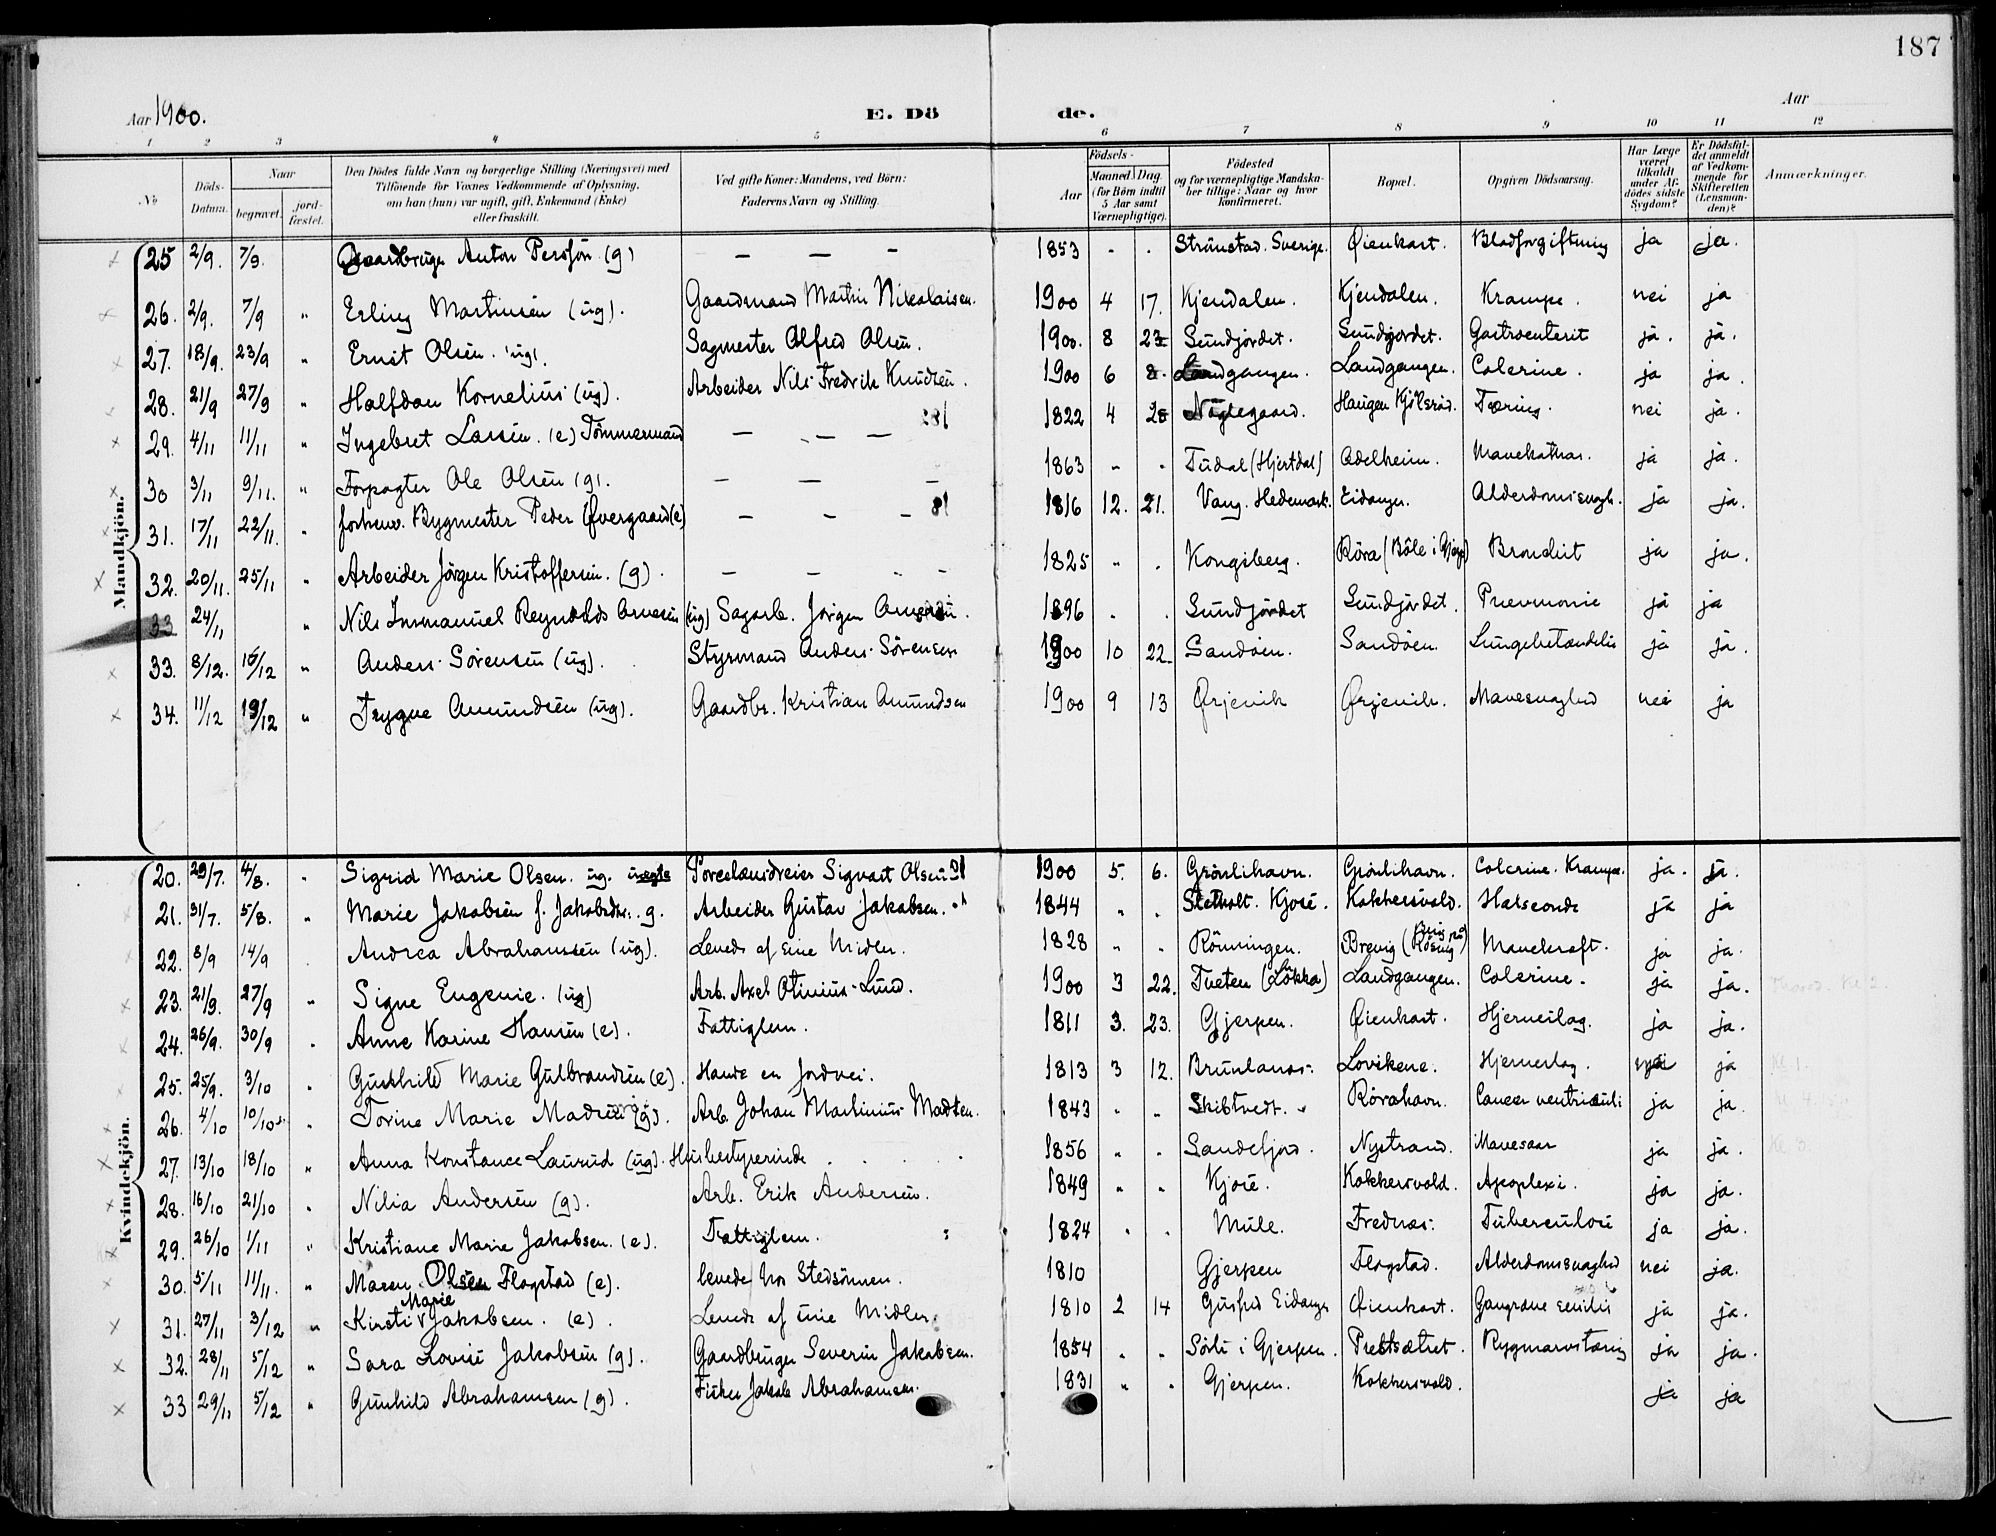 187
Aar 1900. E. Dö de. Aar
1 2 3 4 5 6 7 8 9 10 11 12
No Döds-Datum. Naar begravet. jord-fæstet. Den Dödes fulde Navn og borgerlige Stilling (Næringsvei) med Tilföiende for Voxnes Vedkommende af Oplysning, om han (hun) var ugift, gift, Enkemand (Enke) eller fraskilt. Ved gifte Koner: Mandens, ved Börn: Faderens Navn og Stilling. Födsels- Aar Maaned. Dag. (for Börn indtil 5 Aar samt Værnepligtige). Födested og for værnepligtige Mandskaber tillige: Naar og hvor konfirmeret. Bopæl. Opgiven Dödsaarsag. Har Læge været tilkaldt under Afdödes sidste Sygdom? Er Dödsfaldet anmeldt af Vedkommende for Skifteretten (Lensmanden)? Anmærkninger.
Mandkjön.
25 2/9. 7/9. Gaardbruger Anton Persson (g) — — — 1853 - - Strömstad. Sverige. Øienkast. Blodforgiftning ja ja.
26. 2/9. 7/9 " Erling Martinsen (ug). Gaardmand Martin Nikolaisen. 1900 4 17. Kjendalen. Kjendalen. Krampe. nei ja
27. 18/9. 23/9 " Ernst Olsen. (ug). Sagmester Alfred Olsen. 1900. 8 23 Sundjordet. Sundjordet. Gastroenterit ja. ja.
28. 21/9 27/9 " Halfdan Kornelius (ug). Arbeider Nils Fredrik Knudsen. 1900 6 8. Landgangen. Landgangen. Colerine. ja ja.
29. 4/11 11/11 " Ingebret Larsen. (e) Tömmermand — — — 1822 4 28 Nöglegaard. Haugen Kjölsrød. Tæring. nei ja.
30 3/11 9/11. " Forpagter Ole Olsen (g). — — — 1863 " " Tudal (Hjertdal) Adelheim. Mavekathar. ja ja.
31. 17/11 22/11. " forhenv. Bygmester Peder Øvergaard (e) — — — 1816 12. 21. Vang. Hedemark. Eidanger. Alderdomssvagh. ja ja.
32. 20/11. 25/11 " Arbeider Jörgen Kristoffersen. (g). — — - - 1825 " . Kongsberg. Röra (Böle i Gjerp) Bronchit ja ja.
33 24/11 " Nils Immanuel Reynolds Arnesen (ug) Sagarb. Jörgen Arnesen. 1896 . . Sundjordet Sundjordet. Pnevmonie ja ja
33. 8/12. 16/12 " Anders Sörensen (ug). Styrmand Anders Sörensen 1900 10 22. Sandöen. Sandöen. Lungebetændelse ja ja.
34. 11/12 19/12 " Trygve Amundsen (ug). Gaardbr. Kristian Amundsen 1900 9 13 Ørjevik Ørjevik. Mavesvaghed nei ja
Kvindekjön.
20. 29/7. 4/8. " Sigrid Marie Olsen. ug. uægte Porcelænsdreier Sigvart Olsen 1900 5. 6. Grönlihavn. Grönlihavn. Colerine. Krampe. ja. ja.
21. 31/7. 5/8. " Marie Jakobsen f. Jakobsdtr. g. Arbeider Gustav Jakobsen. 1844 " . Stetholt. Kjose. Kokkersvold. Halsonde ja ja
22. 8/9 14/9 Andrea Abrahamsen (ug). Levede af sine Midler. 1828 " . Rönningen. Brevig Mavekræft. ja ja.
23. 21/9. 27/9 " Signe Eugenie. (ug) Arb. Axel Otinius Lund. 1900 3 22. Tveten (Lökka) Landgangen. Colerine. ja ja.
24. 26/9. 30/9 " Anne Karine Hansen (e). Fattiglem. 1811 3. 23. Gjerpen. Øienkast. Hjerneslag. ja ja.
25. 25/9. 3/10 " Gunhild Marie Gulbrandsen (e). Havde en Jordvei. 1813 3 12. Brunlanæs. Lovikene. Hjerneslag. ja
26. 4/10 10/10 " Torine Marie Madsen (g). Arb. Johan Martinius Madsen. 1843 " . Skibtvedt. Rörahavn. Cancer ventriculi ja ja.
27. 13/10 18/10 " Anna Konstance Laurud (ug). Husbestyrerinde 1856 " . Sandefjord. Nystrand. Mavesaar ja ja.
28. 16/10 21/10 " Nilia Andersen (g). Arb. Erik Andersen. 1849 " . Kjose. Kokkersvold. Apoplexi. ja ja.
29. 26/10 1/11 " Kristiane Marie Jakobsen. (e). Fattiglem. 1824 " . Mule. Frednæs. Tuberculose ja ja.
30. 5/11 11/11. " Maren Olsen Flogstad (e). levede hos Stedsönnen. 1810 Gjerpen Flogstad. Alderdomssvaghed nei ja.
31. 27/11 3/12 " Kirsti Marie Jakobsen. (e). Levede af sine Midler. 1810 2 14 Eidanger Øienkast. Gangræne senilis ja ja.
32. 28/11 5/12 " Sara Lovise Jakobsen (g). Gaardbruger Severin Jakobsen. 1854 " . Sörli i Gjerpen. Prestsætret. Rygmarvstæring ja ja.
33 29/11 5/12 " Gunhild Abrahamsen (g). Fisker Jakob Abrahamsen. 1831 " . Gjerpen. Kokkersvold. ja ja